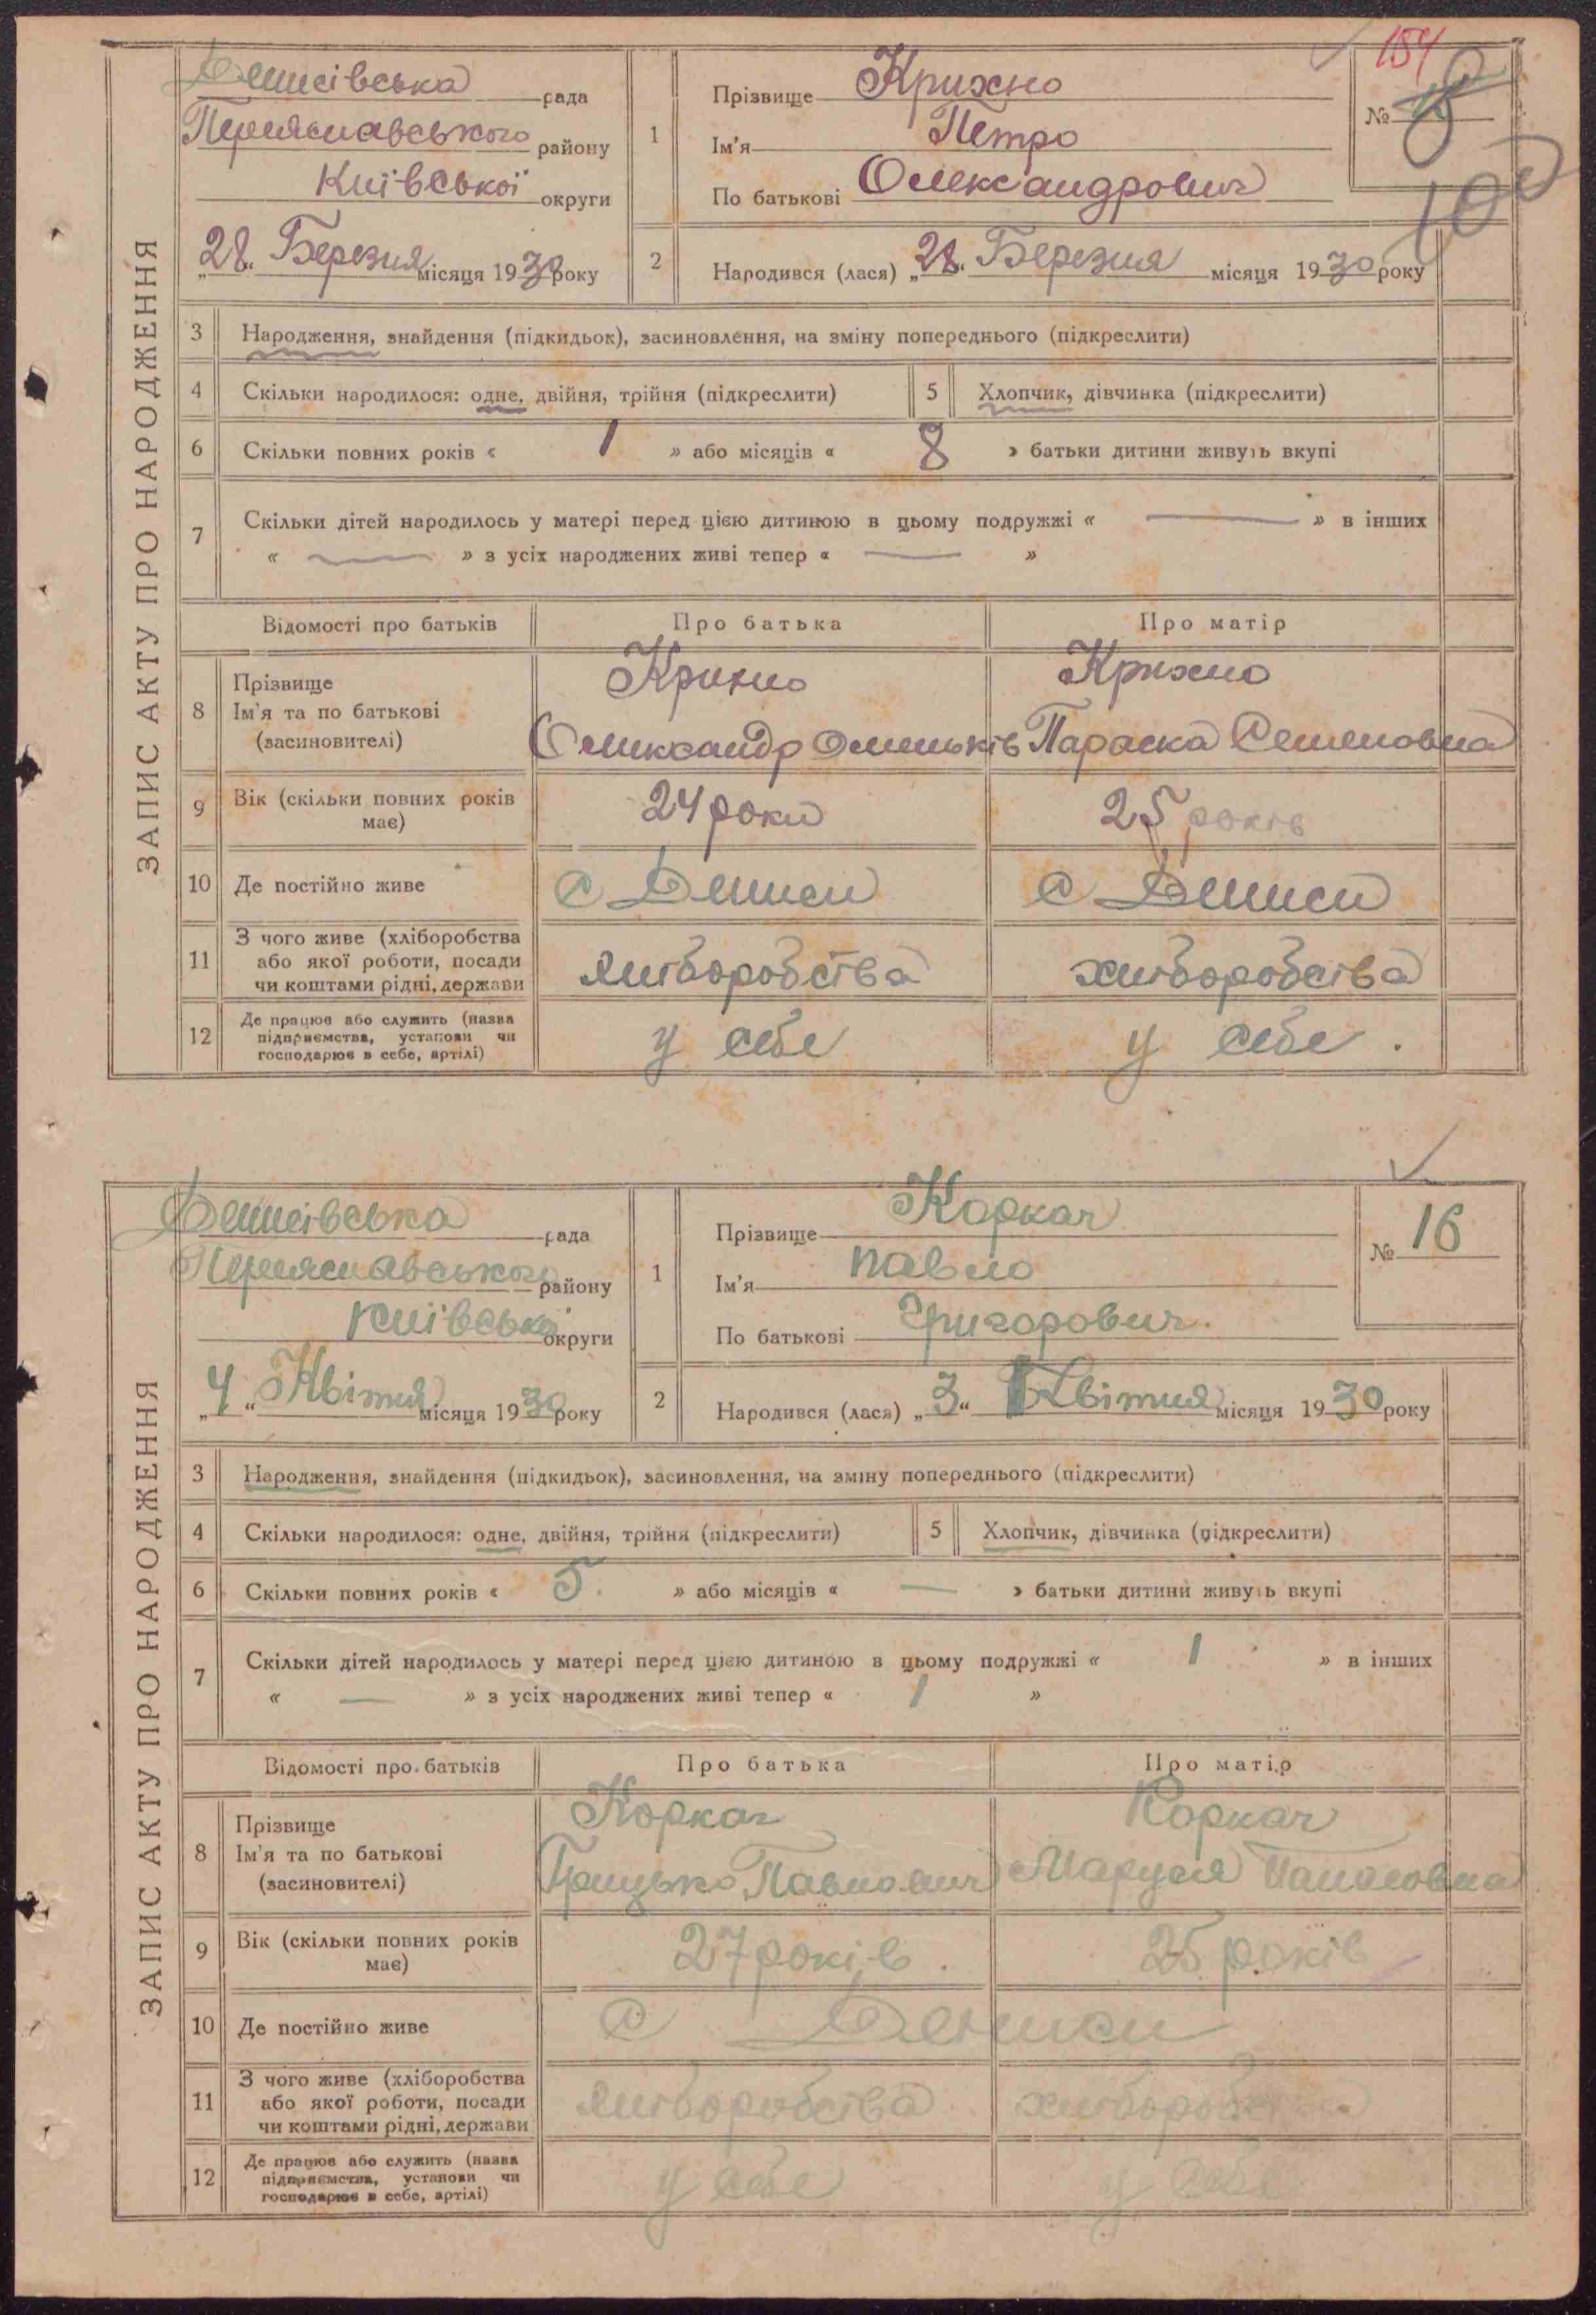 154
ЗАПИС АКТУ ПРО НАРОДЖЕННЯ
Денисівська рада
Переяславського району
Київської округи
„28“ Березня місяця 1930 року
1 Прізвище Крихно
Ім'я Петро
По батькові Олександрович
№
100
2 Народився (лася) „28“ Березня місяця 1930 року
3 Народження, знайдення (підкидьок), засиновлення, на зміну попереднього (підкреслити)
4 Скільки народилося: одне, двійня, трійня (підкреслити) 5 Хлопчик, дівчинка (підкреслити)
6 Скільки повних років « 1 » або місяців « 8 » батьки дитини живуть вкупі
7 Скільки дітей народилось у матері перед цією дитиною в цьому подружжі « — » в інших
« — » з усіх народжених живі тепер « — »
Відомості про батьків Про батька Про матір
8 Прізвище Крихно Крихно
Ім'я та по батькові
(засиновителі) Олександр Параска Семеновна
9 Вік (скільки повних років має) 24 роки 25 років
10 Де постійно живе с Дениси с Дениси
11 З чого живе (хліборобства
або якої роботи, посади
чи коштами рідні, держави хліборобства хліборобства
12 Де працює або служить (назва
підприємства, установи чи
господарює в себе, артілі) у себе у себе.
ЗАПИС АКТУ ПРО НАРОДЖЕННЯ
Денисівська рада
Переяславського району
Київської округи
„4“ Квітня місяця 1930 року
1 Прізвище Коркач
Ім'я Павло
По батькові Григорович.
№ 16
2 Народився (лася) „3“ Квітня місяця 1930 року
3 Народження, знайдення (підкидьок), засиновлення, на зміну попереднього (підкреслити)
4 Скільки народилося: одне, двійня, трійня (підкреслити) 5 Хлопчик, дівчинка (підкреслити)
6 Скільки повних років « 5 » або місяців « — » батьки дитини живуть вкупі
7 Скільки дітей народилось у матері перед цією дитиною в цьому подружжі « 1 » в інших
« — » з усіх народжених живі тепер « 1 »
Відомості про батьків Про батька Про матір
8 Прізвище Коркач Коркач
Ім'я та по батькові
(засиновителі) Грицько Павлович Маруся Панасовна
9 Вік (скільки повних років має) 27 років. 25 років
10 Де постійно живе с Дениси
11 З чого живе (хліборобства
або якої роботи, посади
чи коштами рідні, держави хліборобства хліборобства
12 Де працює або служить (назва
підприємства, установи чи
господарює в себе, артілі) у себе у себе